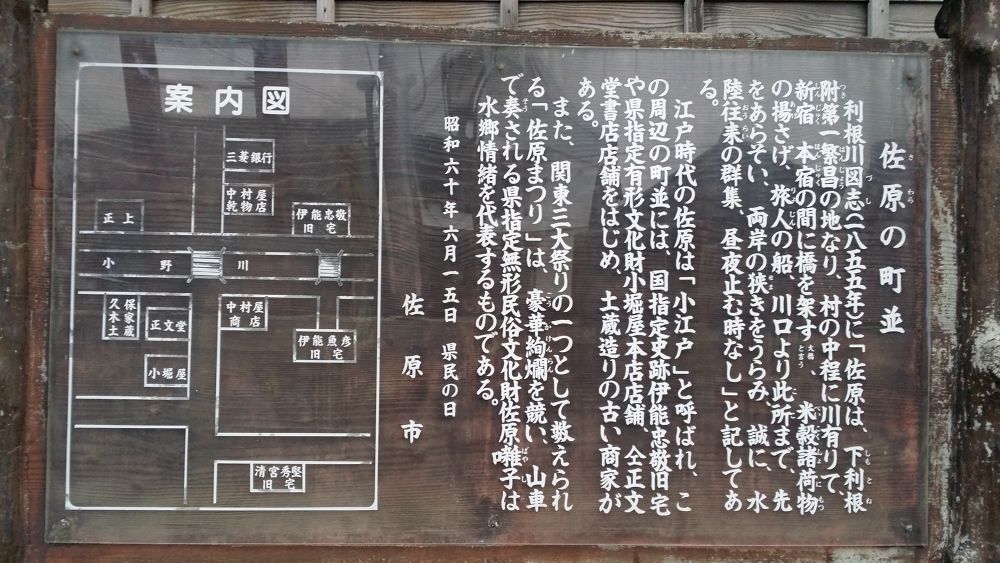 佐原の町並
利根川図志(一八五五年)に「佐原は、下利根
附第一繁昌の地なり、村の中程に川有りて、
新宿 本宿の間に橋を架す(大橋と言う)、米穀諸荷物
の揚さげ、旅人の船、川口より此所まで、先
をあらそい、両岸の狭きをうらみ、誠に、水
陸往来の群集、昼夜止む時なし」と記してあ
る。
江戸時代の佐原は「小江戸」と呼ばれ、こ
の周辺の町並には、国指定史跡伊能忠敬旧宅
や県指定有形文化財小堀屋本店店舗、仝正文
堂書店店舗をはじめ、土蔵造りの古い商家が
ある。
また、関東三大祭りの一つとして数えられ
る「佐原まつり」は、豪華絢爛を競い、山車
で奏される県指定無形民俗文化財佐原囃子は
水郷情緒を代表するものである。
昭和六十年六月一五日 県民の日
佐原市
案内図
三菱銀行
中村屋
乾物店
正上
伊能忠敬
旧宅
小野川
久保木家
土蔵
正文堂
小堀屋
中村屋
商店
伊能魚彦
旧宅
清宮秀堅
旧宅